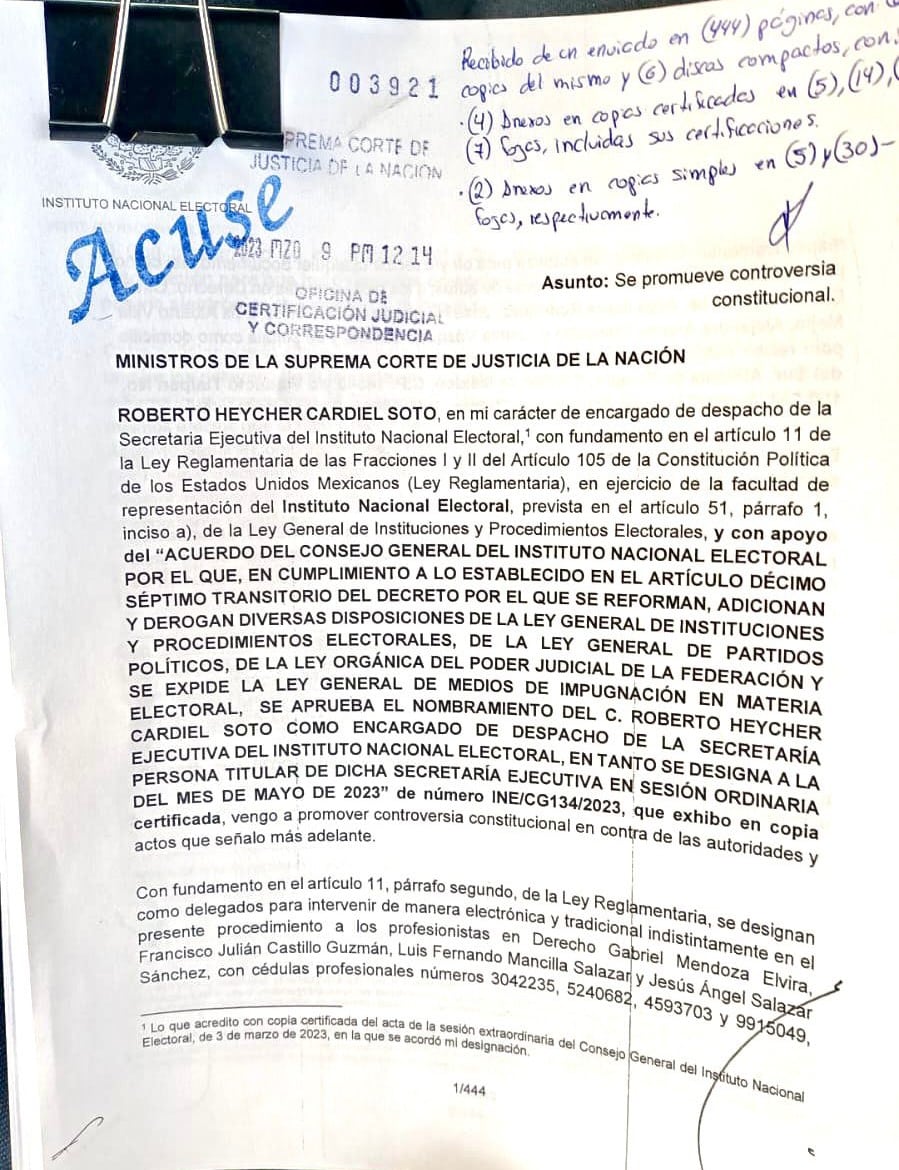 Recibido de un enviado en (444) páginas, con
copias del mismo y (6) discos compactos, con:
·(4) Anexos en copias certificadas en (5), (14),
(7) fojas, incluidas sus certificaciones.
·(2) Anexos en copias simples en (5) y (30)-
fojas, respectivamente.
003921
SUPREMA CORTE DE
JUSTICIA DE LA NACIÓN
INSTITUTO NACIONAL ELECTORAL
Acuse
2023 MZO 9 PM 12 14
OFICINA DE
CERTIFICACIÓN JUDICIAL
Y CORRESPONDENCIA
Asunto: Se promueve controversia
constitucional.
MINISTROS DE LA SUPREMA CORTE DE JUSTICIA DE LA NACIÓN
ROBERTO HEYCHER CARDIEL SOTO, en mi carácter de encargado de despacho de la
Secretaria Ejecutiva del Instituto Nacional Electoral,¹ con fundamento en el artículo 11 de
la Ley Reglamentaria de las Fracciones I y II del Artículo 105 de la Constitución Política
de los Estados Unidos Mexicanos (Ley Reglamentaria), en ejercicio de la facultad de
representación del Instituto Nacional Electoral, prevista en el artículo 51, párrafo 1,
inciso a), de la Ley General de Instituciones y Procedimientos Electorales, y con apoyo
del “ACUERDO DEL CONSEJO GENERAL DEL INSTITUTO NACIONAL ELECTORAL
POR EL QUE, EN CUMPLIMIENTO A LO ESTABLECIDO EN EL ARTÍCULO DÉCIMO
SÉPTIMO TRANSITORIO DEL DECRETO POR EL QUE SE REFORMAN, ADICIONAN
Y DEROGAN DIVERSAS DISPOSICIONES DE LA LEY GENERAL DE INSTITUCIONES
Y PROCEDIMIENTOS ELECTORALES, DE LA LEY GENERAL DE PARTIDOS
POLÍTICOS, DE LA LEY ORGÁNICA DEL PODER JUDICIAL DE LA FEDERACIÓN Y
SE EXPIDE LA LEY GENERAL DE MEDIOS DE IMPUGNACIÓN EN MATERIA
ELECTORAL, SE APRUEBA EL NOMBRAMIENTO DEL C. ROBERTO HEYCHER
CARDIEL SOTO COMO ENCARGADO DE DESPACHO DE LA SECRETARÍA
EJECUTIVA DEL INSTITUTO NACIONAL ELECTORAL, EN TANTO SE DESIGNA A LA
PERSONA TITULAR DE DICHA SECRETARÍA EJECUTIVA EN SESIÓN ORDINARIA
DEL MES DE MAYO DE 2023” de número INE/CG134/2023, que exhibo en copia
certificada, vengo a promover controversia constitucional en contra de las autoridades y
actos que señalo más adelante.
Con fundamento en el artículo 11, párrafo segundo, de la Ley Reglamentaria, se designan
como delegados para intervenir de manera electrónica y tradicional indistintamente en el
presente procedimiento a los profesionistas en Derecho Gabriel Mendoza Elvira,
Francisco Julián Castillo Guzmán, Luis Fernando Mancilla Salazar y Jesús Ángel Salazar
Sánchez, con cédulas profesionales números 3042235, 5240682, 4593703 y 9915049,
¹ Lo que acredito con copia certificada del acta de la sesión extraordinaria del Consejo General del Instituto Nacional
Electoral, de 3 de marzo de 2023, en la que se acordó mi designación.
1/444